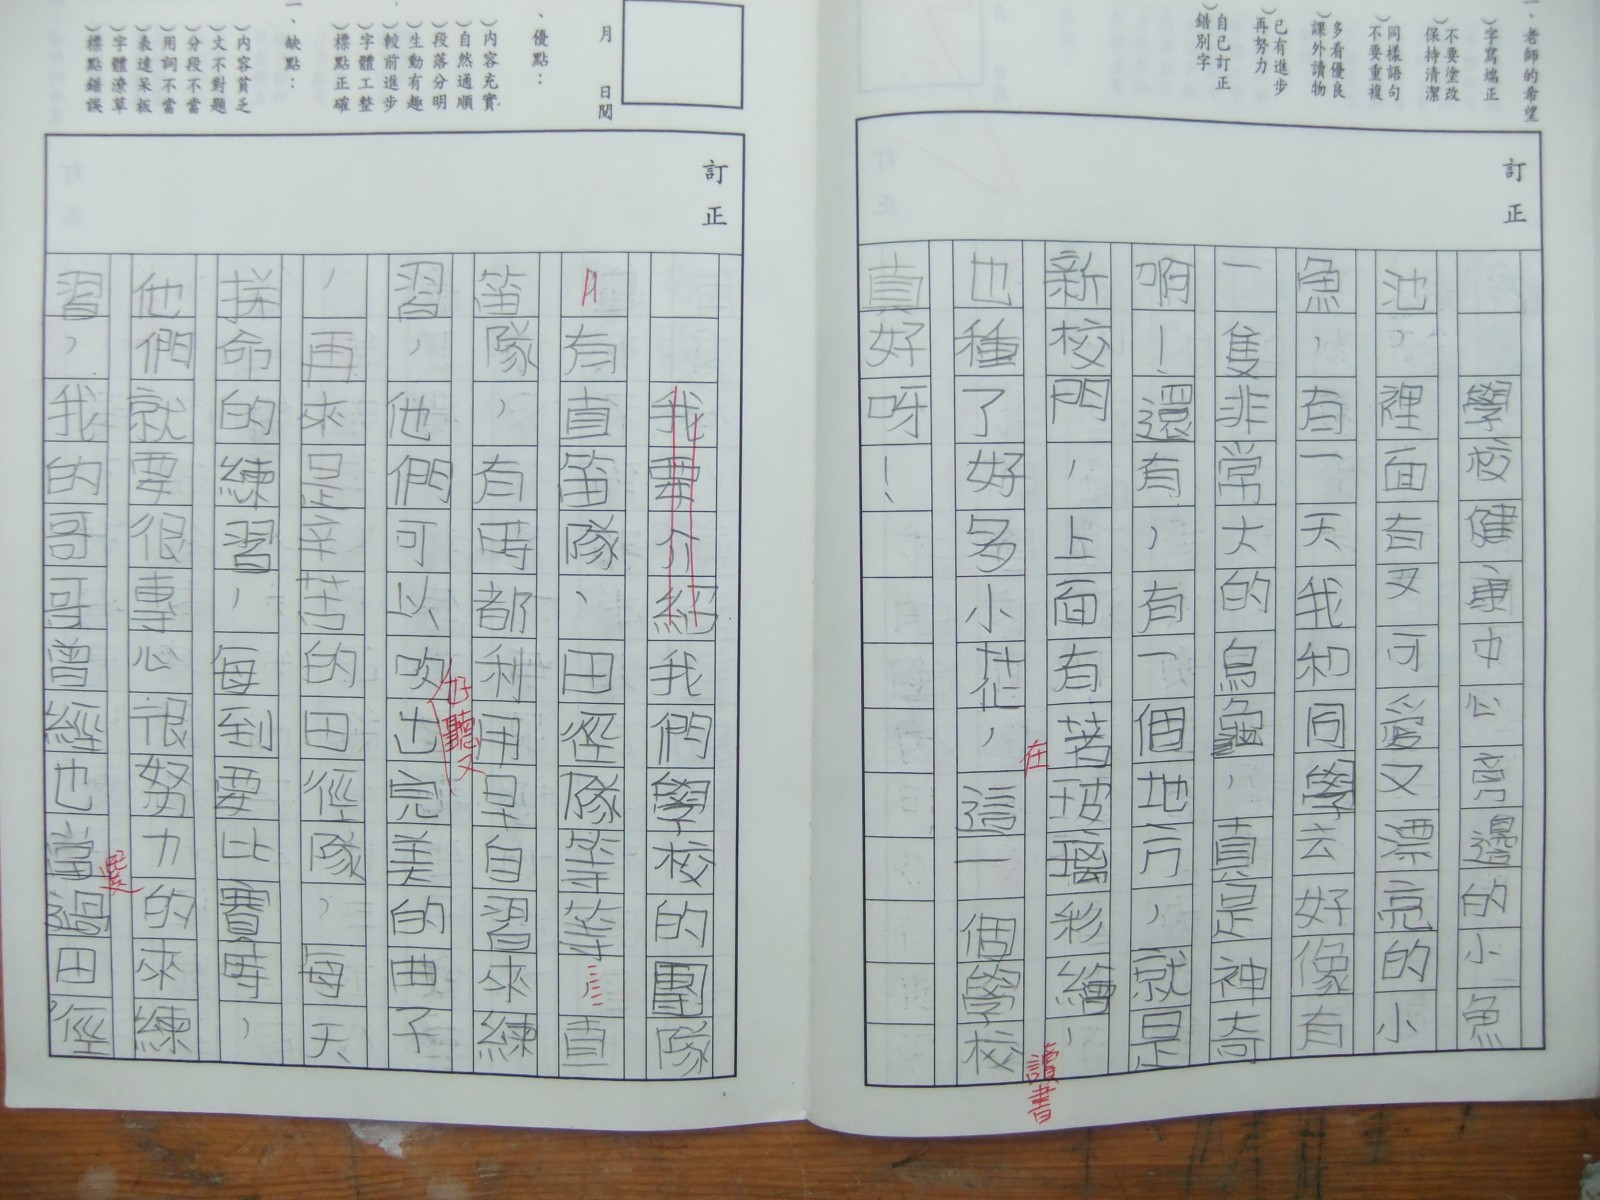 一、老師的希望
）字寫端正
）不要塗改
保持清潔
）同樣語句
不要重複
）多看優良
課外讀物
）已有進步
再努力
）自己訂正
錯別字
訂正
學校健康中心旁邊的小魚
池，裡面有又可愛又漂亮的小
魚，有一天我和同學去好像有
一隻非常大的烏龜，真是神奇
啊！還有，有一個地方，就是
新校門，上面有著玻璃彩繪，
也種了好多小花，這一個學校
真好呀！
在
讀書
月 日閱
、優點：
）內容充實
）自然通順
）段落分明
）生動有趣
）較前進步
）字體工整
）標點正確
一、缺點：
）內容貧乏
）文不對題
）分段不當
）用詞不當
）表達呆板
）字體潦草
）標點錯誤
訂正
我要介紹我們學校的團隊
有直笛隊、田徑隊等等，直
笛隊，有時都利用早自習來練
習，他們可以吹出完美的曲子
好聽又
，再來是辛苦的田徑隊，每天
拼命的練習，每到要比賽時，
他們就要很專心很努力的來練
選
習，我的哥哥曾經也當過田徑